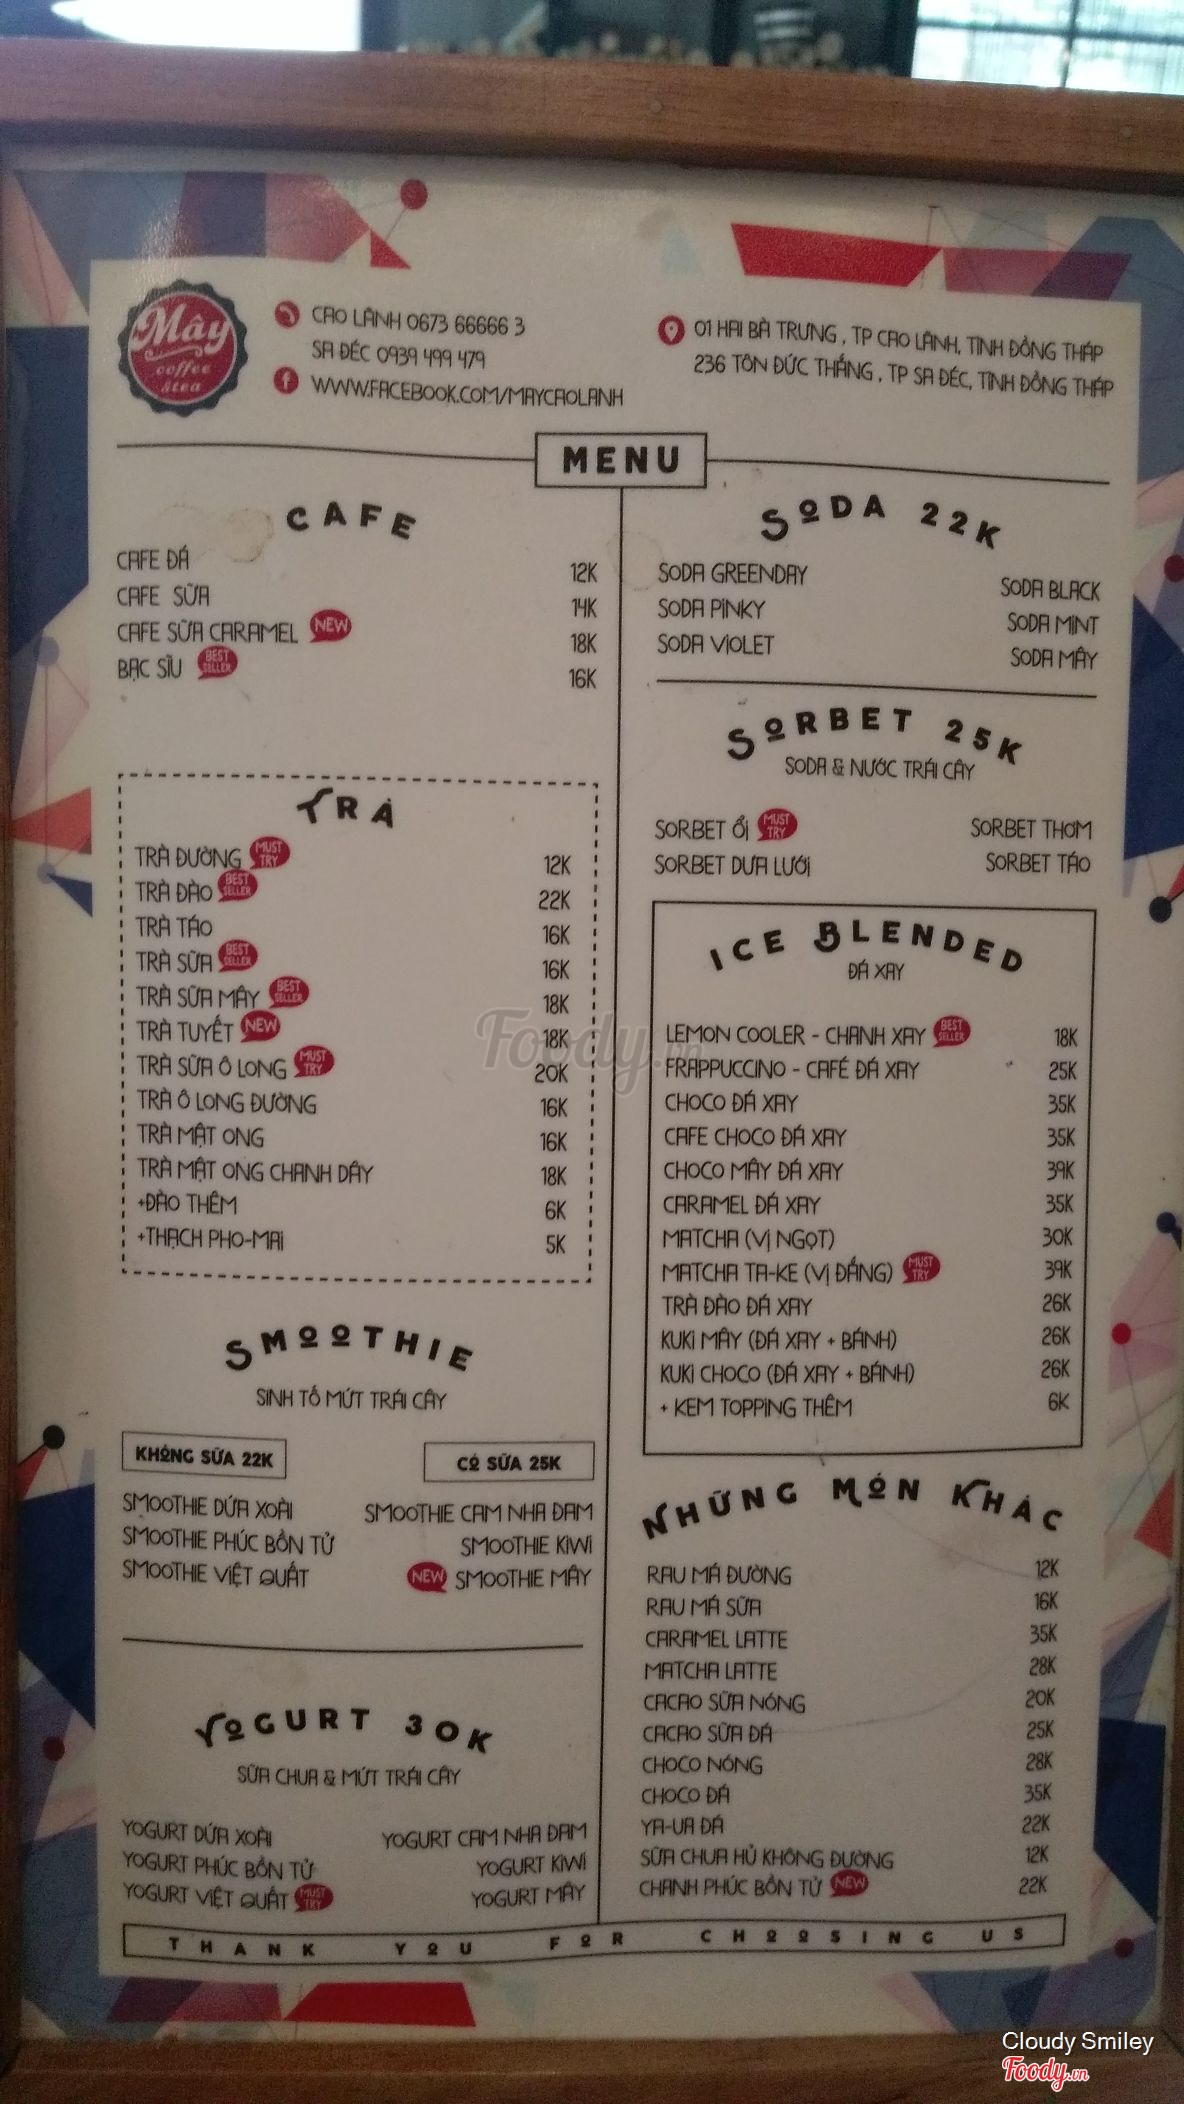 Mây
coffee
&tea
CAO LÃNH 0673 66666 3
SA ĐÉC 0939 499 479
WWW.FACEBOOK.COM/MAYCAOLANH
01 HAI BÀ TRƯNG , TP CAO LÃNH, TỈNH ĐỒNG THÁP
236 TÔN ĐỨC THẮNG , TP SA ĐÉC, TỈNH ĐỒNG THÁP
MENU
CAFE
CAFE ĐÁ 12K
CAFE SỮA 14K
CAFE SỮA CARAMEL NEW 18K
BẠC SĨU BEST SELLER 16K
TRÀ
TRÀ ĐƯỜNG MUST TRY 12K
TRÀ ĐÀO BEST SELLER 22K
TRÀ TÁO 16K
TRÀ SỮA BEST SELLER 16K
TRÀ SỮA MÂY BEST SELLER 18K
TRÀ TUYẾT NEW 18K
TRÀ SỮA Ô LONG MUST TRY 20K
TRÀ Ô LONG ĐƯỜNG 16K
TRÀ MẬT ONG 16K
TRÀ MẬT ONG CHANH DÂY 18K
+ĐÀO THÊM 6K
+THẠCH PHO-MAI 5K
SMOOTHIE
SINH TỐ MỨT TRÁI CÂY
KHÔNG SỮA 22K
CÓ SỮA 25K
SMOOTHIE DỨA XOÀI SMOOTHIE CAM NHA ĐAM
SMOOTHIE PHÚC BỒN TỬ SMOOTHIE KIWI
SMOOTHIE VIỆT QUẤT NEW SMOOTHIE MÂY
YOGURT 30K
SỮA CHUA & MỨT TRÁI CÂY
YOGURT DỨA XOÀI YOGURT CAM NHA ĐAM
YOGURT PHÚC BỒN TỬ YOGURT KIWI
YOGURT VIỆT QUẤT MUST TRY YOGURT MÂY
SODA 22K
SODA GREENDAY SODA BLACK
SODA PINKY SODA MINT
SODA VIOLET SODA MÂY
SORBET 25K
SODA & NƯỚC TRÁI CÂY
SORBET ỔI MUST TRY SORBET THƠM
SORBET DƯA LƯỚI SORBET TÁO
ICE BLENDED
ĐÁ XAY
LEMON COOLER - CHANH XAY BEST SELLER 18K
FRAPPUCCINO - CAFÉ ĐÁ XAY 25K
CHOCO ĐÁ XAY 35K
CAFE CHOCO ĐÁ XAY 35K
CHOCO MÂY ĐÁ XAY 39K
CARAMEL ĐÁ XAY 35K
MATCHA (VỊ NGỌT) 30K
MATCHA TA-KE (VỊ ĐẮNG) MUST TRY 39K
TRÀ ĐÀO ĐÁ XAY 26K
KUKI MÂY (ĐÁ XAY + BÁNH) 26K
KUKI CHOCO (ĐÁ XAY + BÁNH) 26K
+ KEM TOPPING THÊM 6K
NHỮNG MÓN KHÁC
RAU MÁ ĐƯỜNG 12K
RAU MÁ SỮA 16K
CARAMEL LATTE 35K
MATCHA LATTE 28K
CACAO SỮA NÓNG 20K
CACAO SỮA ĐÁ 25K
CHOCO NÓNG 28K
CHOCO ĐÁ 35K
YA-UA ĐÁ 22K
SỮA CHUA HỦ KHÔNG ĐƯỜNG 12K
CHANH PHÚC BỒN TỬ NEW 22K
THANK YOU FOR CHOOSING US
Foody.vn
Cloudy Smiley
Foody.vn